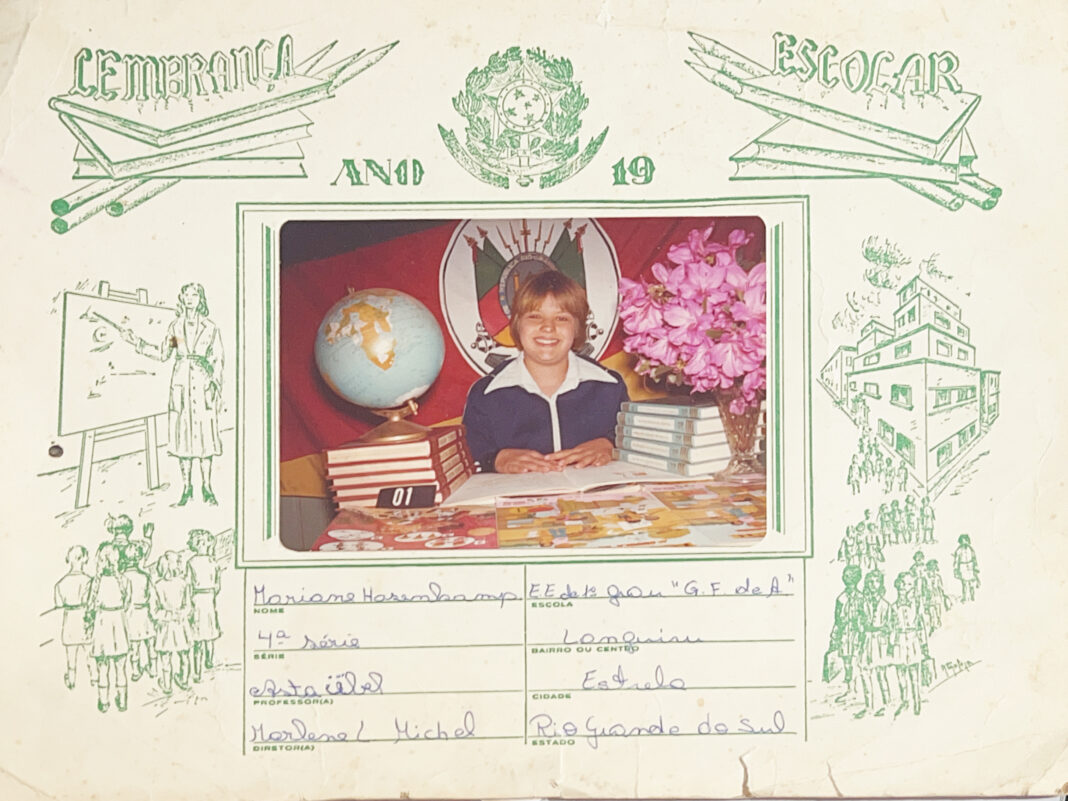 LEMBRANÇA
ESCOLAR
ANO 19
01
Mariane Hasenkamp
NOME
EE de 1º grau "G.F. de A"
ESCOLA
4ª série
SÉRIE
Languiru
BAIRRO OU CENTRO
Asta
PROFESSOR(A)
Estrela
CIDADE
Marlene L Michel
DIRETOR(A)
Rio Grande do Sul
ESTADO